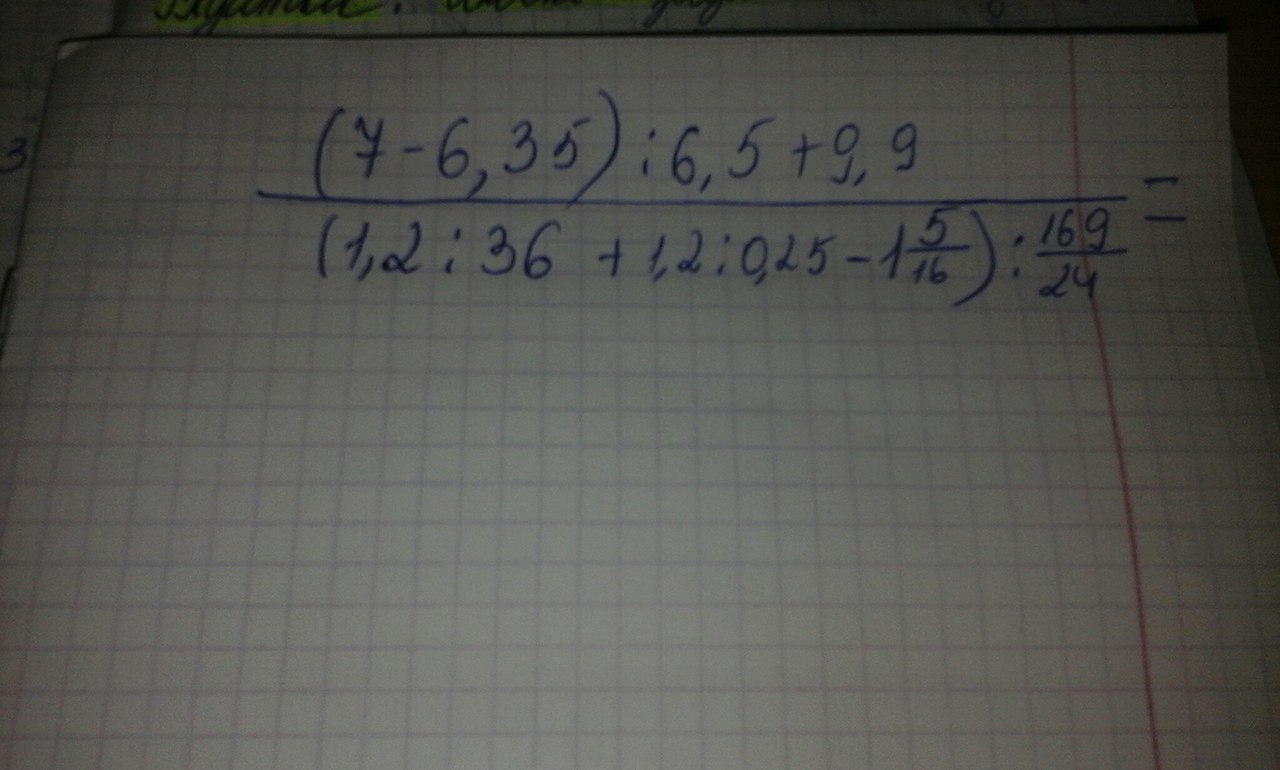 (7-6,35):6,5+9,9
(1,2:36+1,2:0,25-1 5/16):169/24 =